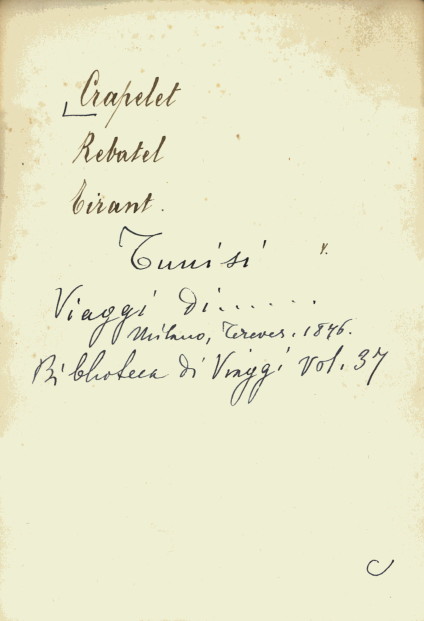 Crapelet
Rebatel
Tirant.
Tunisi
Viaggi di......
Milano, Treves. 1876.
Biblioteca di Viaggi vol. 37
C